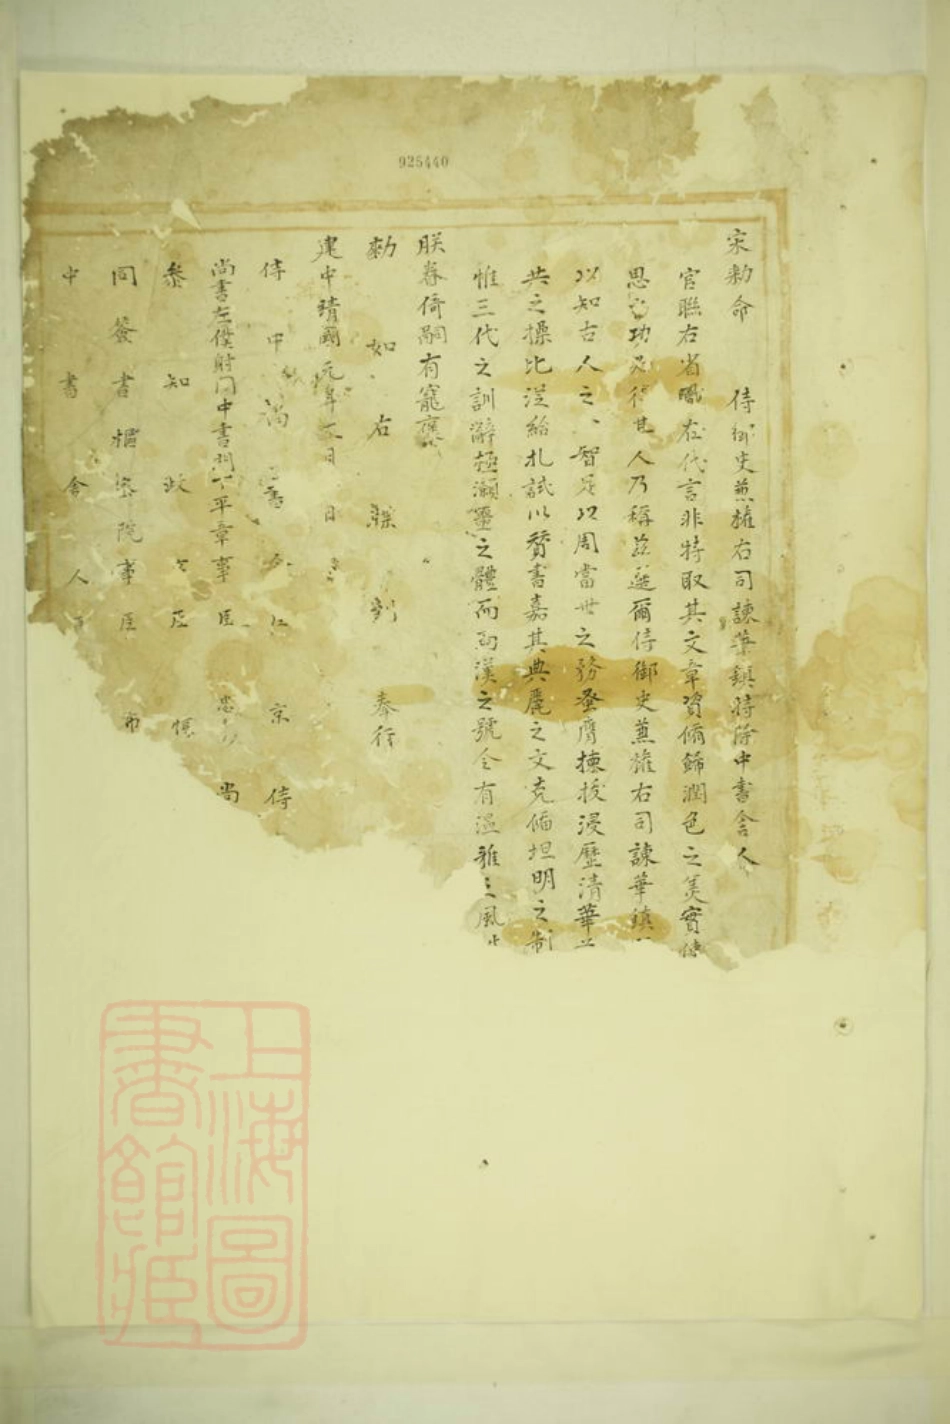 925440
宋勅命 侍御史兼權右司諫葉鎮時除中書舍人
官聯右省職在代言非特取其文章資備飾潤色之美實
思 功 得其人乃稱茲選爾侍御史兼權右司諫華鎮
以知古人之 智足以周當世之務登膺揀拔浸歷清華
共之操比从給札試以贊書嘉其典麗之文克備坦明之制
惟三代之訓辭極灝噩之體而兩漢之號令有溫雅之風
朕眷倚嗣有寵褒
勅如右牒到奉行
建中靖國元年 日
侍中 京 侍
尚書左僕射同中書門下平章事臣忠 尚
參知政 臣
同簽書樞密院事臣 布
中書舍人臣
上海圖
書館藏